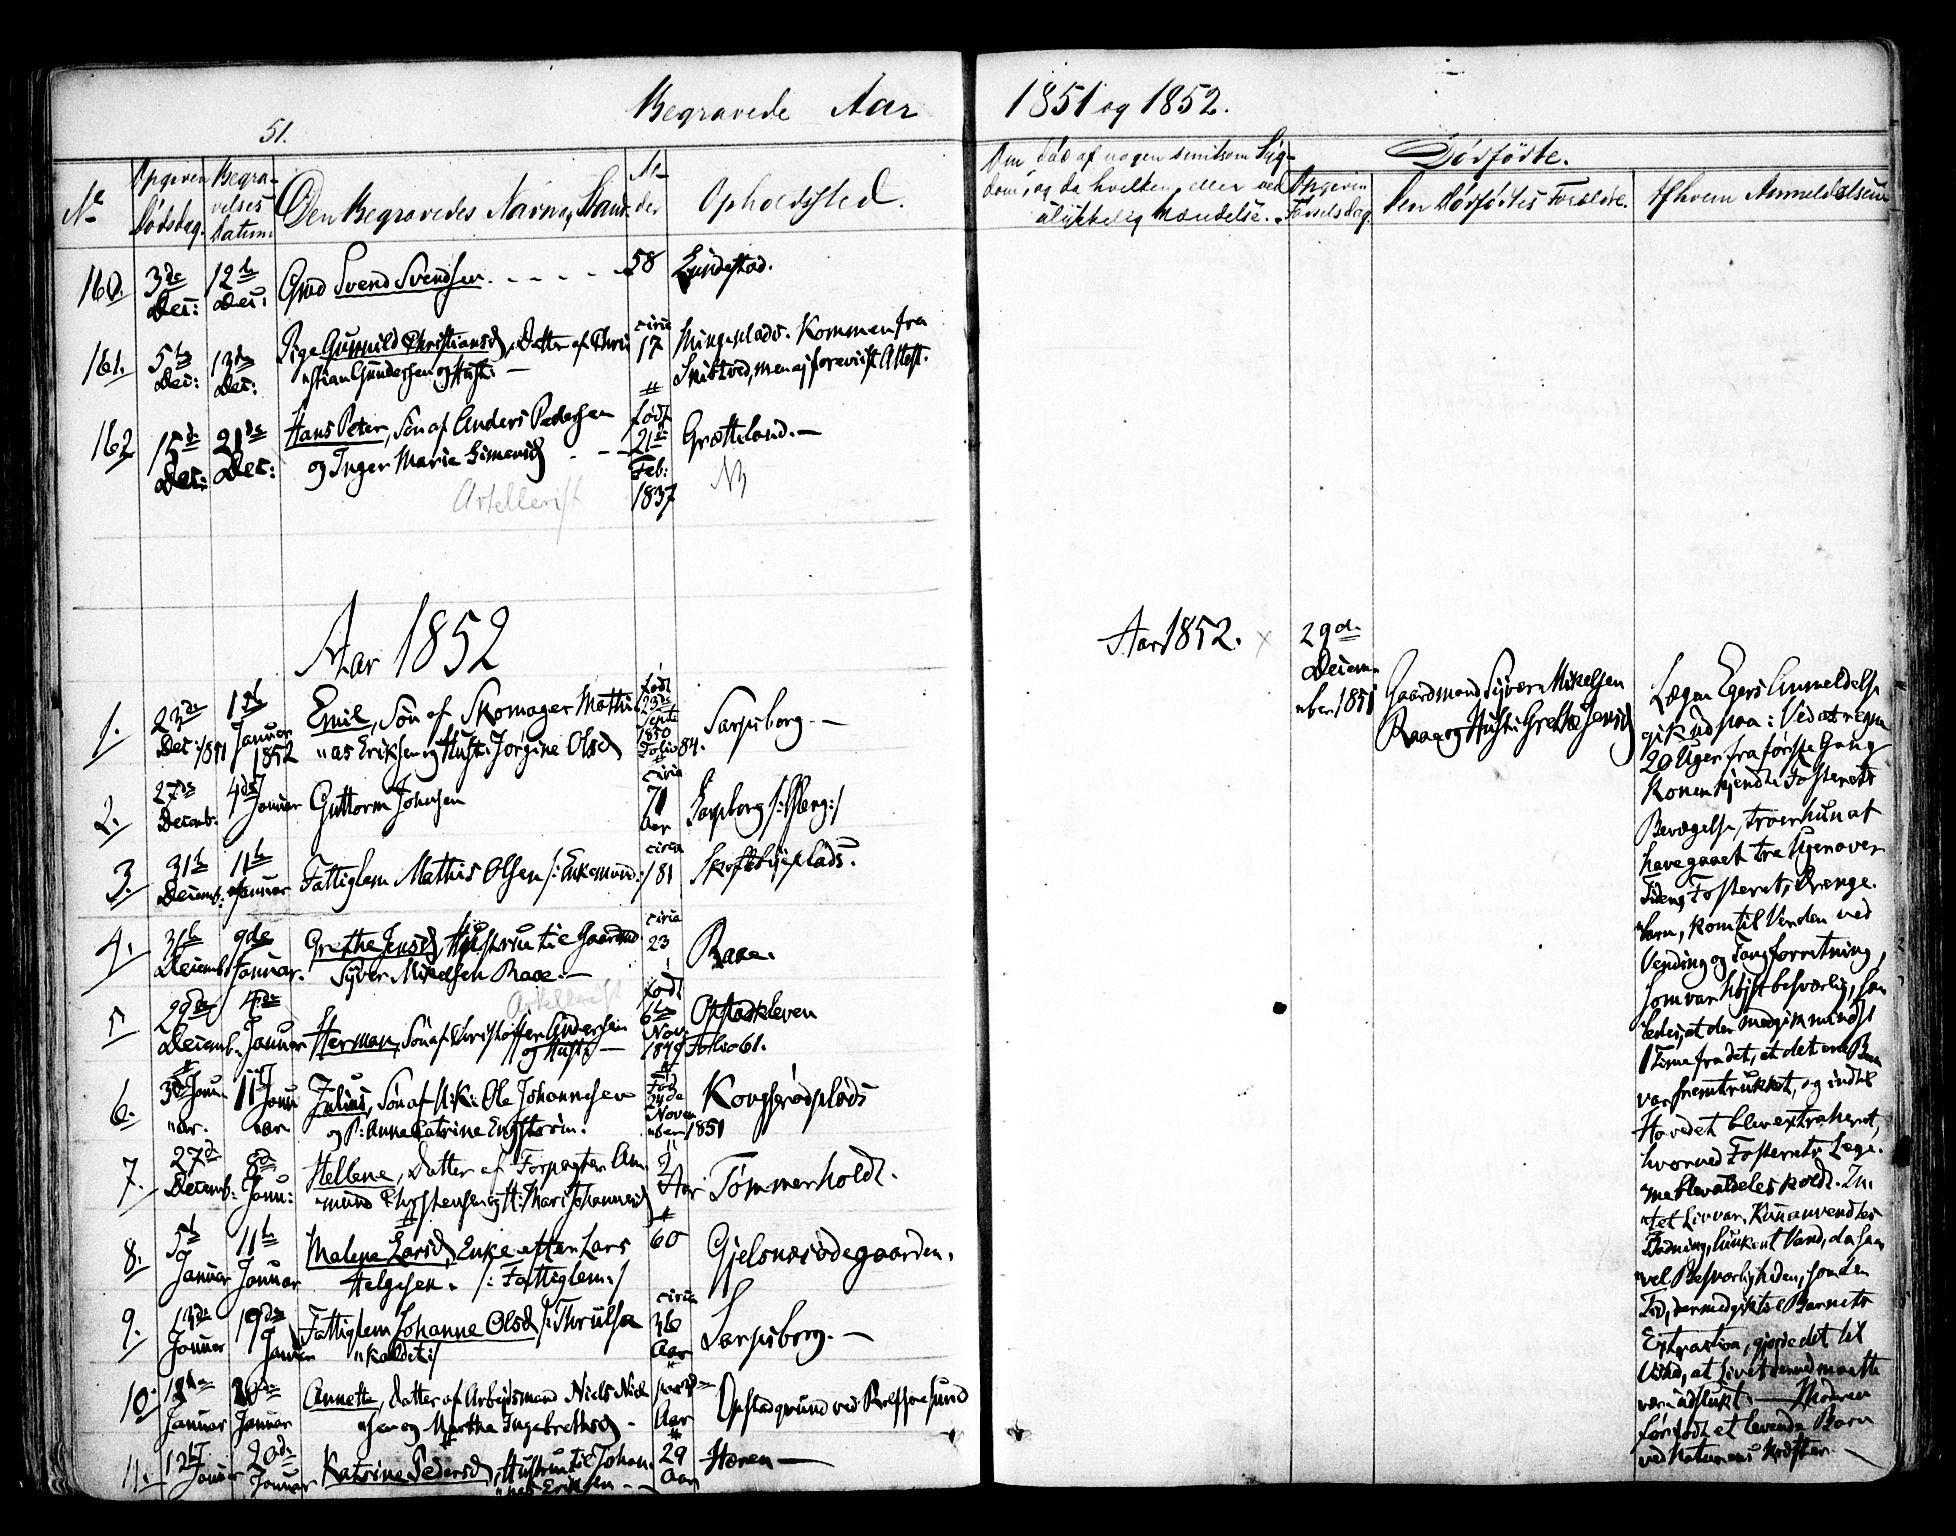 Begravede Aar 1851 og 1852.
51.
No
Opgiven Dødsdag.
Begravelses Datum
Den Begravedes Navn og Stand.
Alder
Opholdssted.
Den død af nogen smitsom Sygdom, og da hvilken, eller ved ulykkelig Hændelse.
Dødfødte.
Opgiven Fødselsdag.
Den Dødfødtes Forældre.
Af hvem Anmeldelsen
160. 3de Dec: 12te Dec: Gmd Svend Svendsen. - - - - 58 Lundestad.
161. 5te Dec: 13de Dec: Pige Gunnild Christiansd, Datter af Chri
"stian Gundersen og Hust: —
circa 17
Mingeplads. Kommen fra
Skibtved, men ej foreviist Attest.
162 15de Dec: 21de Dec: Hans Peter, Søn af Anders Pedersen
og Inger Marie Simensd - - -
født 21de Feb: 1837
Grætteland. —
NB
Aar 1852
1. 23de Dec: 1851 1te Januar 1852
Emil, Søn af Skomager Mathi
"as Eriksen og Hust: Jørgine Olsd
født 23de Septe 1850 Folio 84.
Sarpsborg. —
2. 27de Decemb: 4de Januar Guttorm Johnsen
circa 71 Aar
Sarpsborg
3. 31te Decemb: 11te Januar Fattiglem Mathis Olsen /: Enkemand :/
circa 81
4. 31te Decemb 9de Januar. Grethe Jensd, Hustrue til Gaardmd
Syver Mikelsen Raae. —
circa 23
Raae.
5 29de Decemb. 4de Januar Herman, Søn af Christoffer Andersen
og Hust: —
født 6te Nov: 1849 Folio 61.
Opstadkleven
6. 3de Januar. 11te Januar Julius, Søn af U:K: Ole Johannesen
og P: Anne Catrine Engstrøm.
Fød 24de November 1851
Kongsrødplads
7. 27de Decemb: 8de Janu: Hellene, Datter af Forpagter Am
"mund Christensen og H: Mari Johannesd
2 Aar
Tømmerholdt.
8. 5te Januar 11te Januar Malene Larsd, Enke efter Lars
Helgesen. /: Fattiglem :/
60
Gjelsnæsødegaarden.
9. 13de Januar 19de Januar Fattiglem Johanne Olsd /: Thrulsa
"kaldet :/
circa 36 Aar
Sarpsborg. —
10. Januar Januar Annette, Datter af Arbeidsmand Niels Niel
"sen og Marthe Ingebrethsd -
Aar
Opstadgrund ved Rolfsøesund
11. 12te Januar 20de Januar Katrine Pedersd, Hustrue til Johan
"nes Eriksen - -
29 Aar
Haren —
Aar 1852. x
29de
Decem-
ber 1851
Gaardmand Syver Mikelsen
Raae og Hust: Grethe Jensd
Lægen Egers Anmeldelse
gik ud paa: Ved at regne
20 Uger fra første Gang
Konen kjendte Fosterets
Bevægelse, troer hun at
have gaaet tre Uger over
Tiden, Fosteret, Drenge-
barn, kom til Verden ved
Vending og Tangforretning,
som var højst besværlig, saa-
ledes, at der medgik mindst
1 Time fra det, at det ene Been
var fremtrukket, og indtil
Hovedet blev extraheret,
hvorved Fosterets Lege-
me blev aldeles koldt. In-
tet Liv var. Kun anvendtes
Badning, lunkent Vand, da saa-
vel Besværligheden, som den
Tid, der medgik til Barnets
Extraction, gjorde det til
Vished, at Livet maatte
være udslukt. — Moderen
før født et levende Barn
ved Naturens Kræfter. —